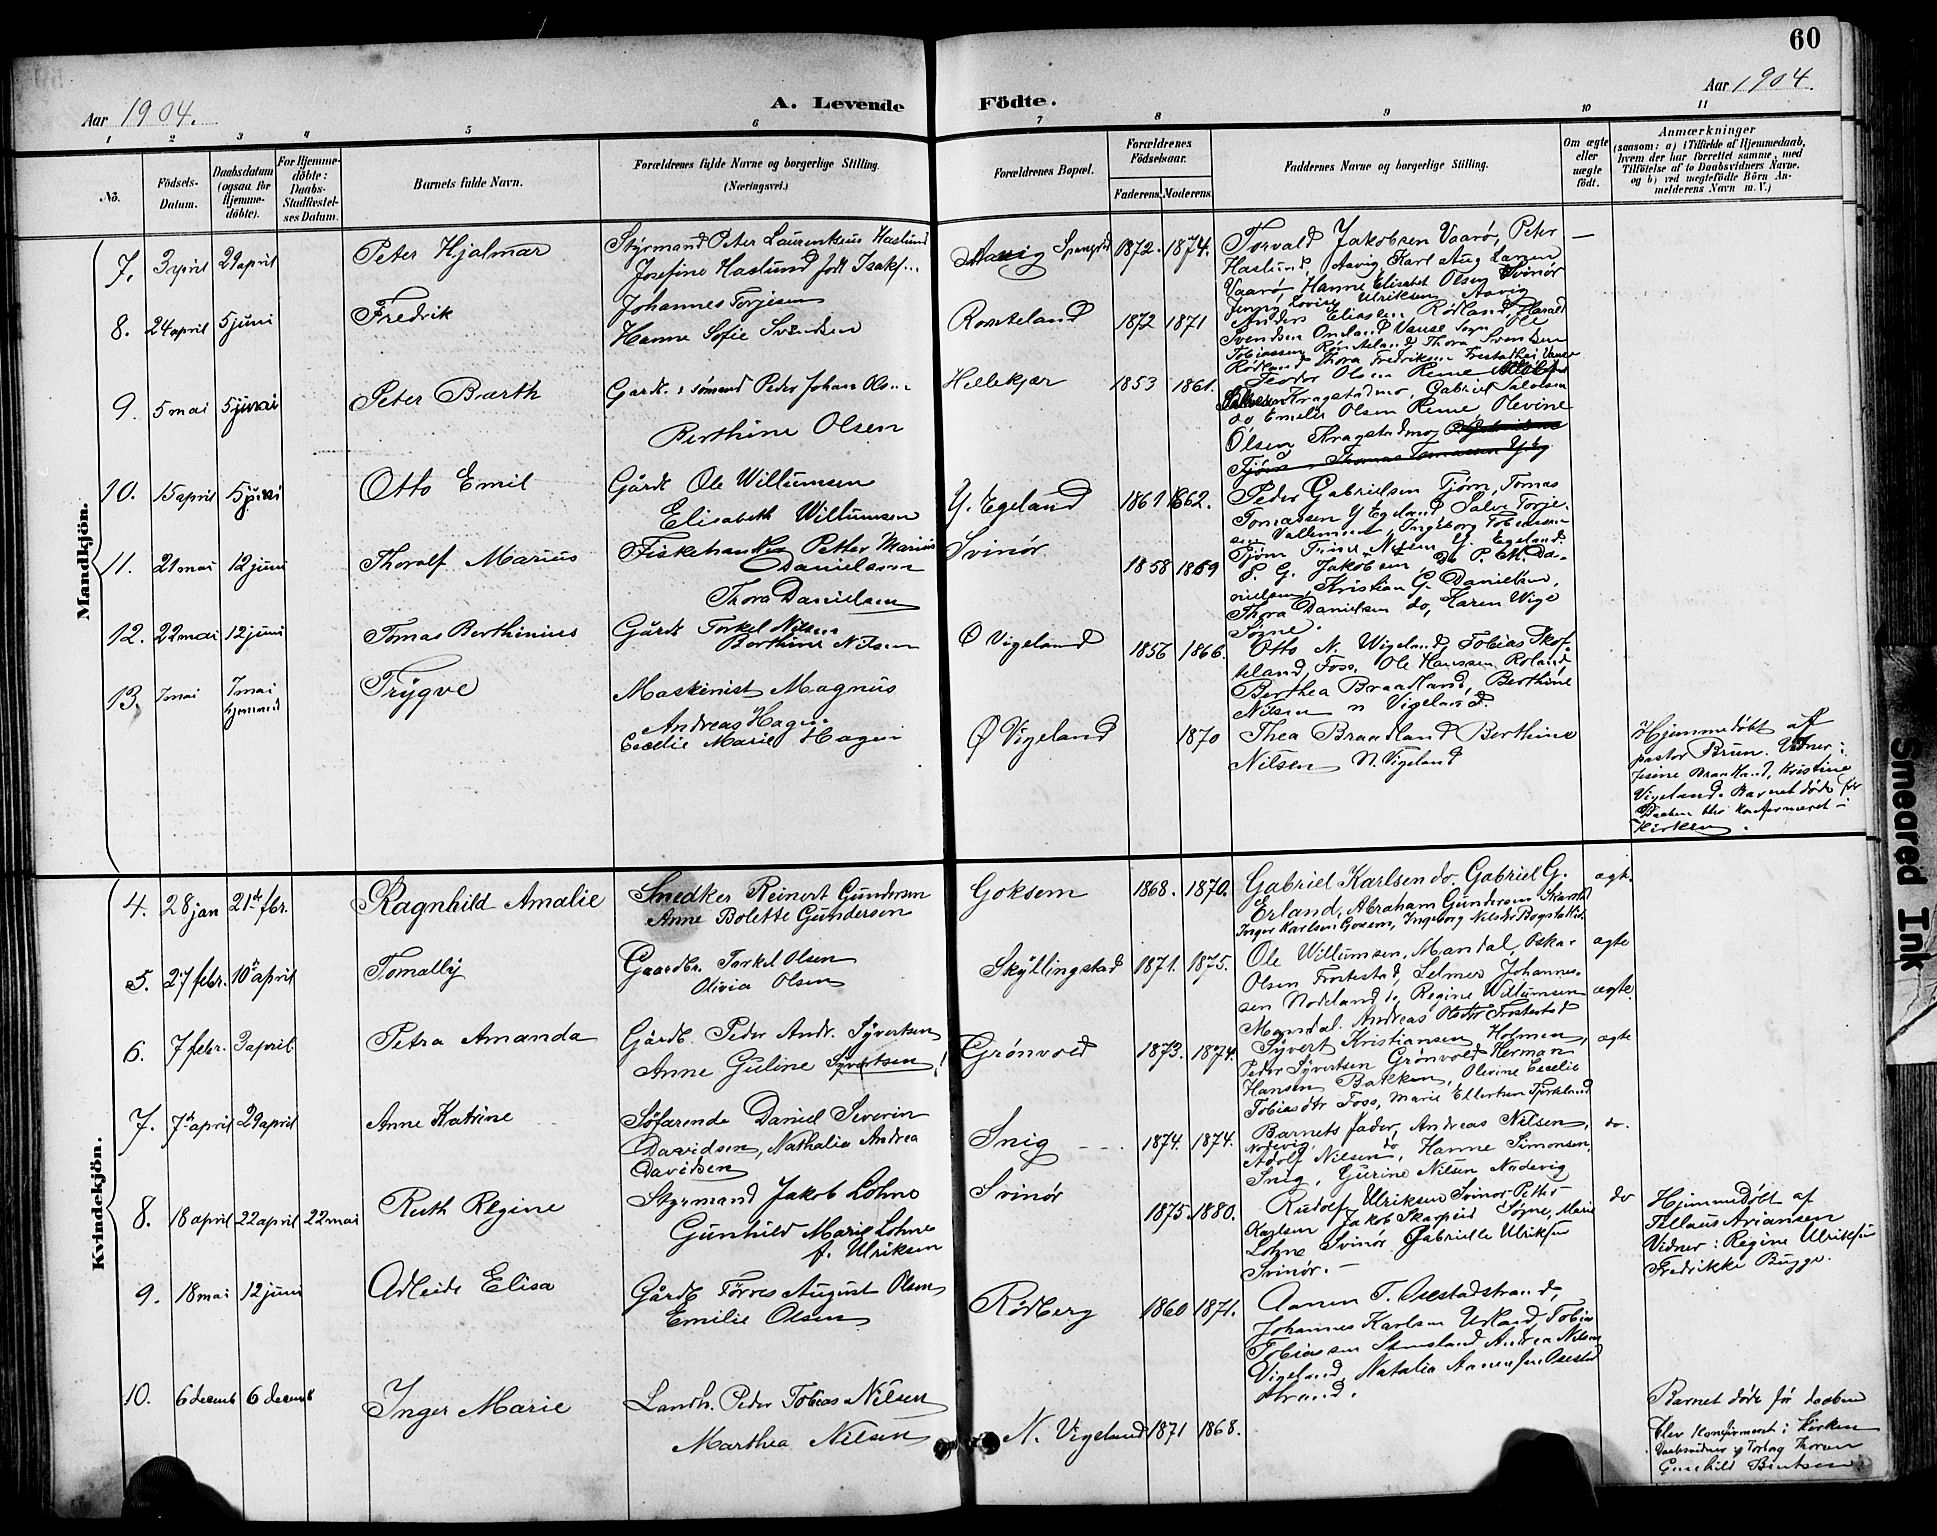 60
Aar 1904.
A. Levende Födte.
Aar 1904.
1 2 3 4 5 6 7 8 9 10 11
No.
Födsels-Datum.
Daabsdatum (ogsaa for Hjemme-döbte).
For Hjemme-döbte: Daabs-Stadfæstel-ses Datum.
Barnets fulde Navn.
Forældrenes fulde Navne og borgerlige Stilling.
(Næringsvei.)
Forældrenes Bopæl.
Forældrenes Födselsaar.
Faderens. Moderens.
Faddernes Navne og borgerlige Stilling.
Om ægte eller uægte födt.
Anmærkninger
(saasom: a) i Tilfælde af Hjemmedaab, hvem der har forrettet samme, med Tilföielse af to Daabsvidners Navne, og b) ved uægtefödte Börn An-melderens Navn m. V.)
Mandkjön.
7. 3 april 29 april
Peter Hjalmar
Styrmand Peter Laurentsius Haslund
Josefine Haslund født Isaks...
Aavig Spangereid 1872. 1874.
Torvald Jakobsen Vaarø, Peter
Haslund, Aavig, Karl Aug Larsen
Vaarø, Hanne Elisabet Olsen Svinør
Jenny Lovise Ulriksen Aavig
8. 24 april 5 juni
Fredrik
Johannes Torjesen
Hanne Sofie Svendsen
Rosteland 1872 1871
Anders Eliassen, Rødland, Harald
Svendsen Omland Vanse Sogn Ole
Tobiassen Røsteland Thora Svendsen
Rødland Thora Fredriksen Frestadhei Vanse
9. 5 mai 5 juni
Peter Barth
Gaardb. & sømand Peder Johan Olsen
Berthine Olsen
Hellekjær 1853 1861.
Teodor Olsen Reme
Kragstadmo, Gabriel Salvesen
do, Emelie Olsen Reme, Olevine
Olsen Kragstadmo
10. 15 april 5 juni
Otto Emil
Gårdb. Ole Willumsen
Elisabeth Willumsen
Y. Egeland 1861 1862.
Peder Gabrielsen Tjørn, Tomas
Tomassen Y Egeland Salve Torje-
sen Vallemoen, Ingeborg Tobiassen
Tjørn Trine Nilsen Y. Egeland
11. 21 mai 12 juni
Thoralf Marius
Fiskehandler Petter Marius
Danielsen
Thora Danielsen
Svinør 1858 1859
P. G. Jakobsen, do P. M. Da-
nielsen, Kristian G. Danielsen,
Thora Danielsen do, Karen Wige
Søgne.
12. 22 mai 12 juni
Tomas Berthinius
Gårdb. Torkel Nilsen
Berthine Nilsen
Ø Vigeland 1856 1866.
Otto N. Wigeland, Tobias Skof-
teland, Foss, Ole Hanssen Roland,
Berthea Braadland, Berthine
Nilsen n Vigeland.
13. 7 mai 7 mai hjemmed
Trygve
Maskinist Magnus
Andreas Hagen
Cecelie Marie Hagen
Ø Vigeland 1870
Thea Braadland Berthine
Nilsen N. Vigeland
Hjemmedøbt af
pastor Brun. Vidner:
Jesine Braadland, Kristine
Vigeland. Barnet døde før
Daaben blev konfirmeret i
Kirken.
Kvindekjön.
4. 28 jan 21de febr.
Ragnhild Amalie
Snedker Reinert Gundersen
Anne Bolette Gundersen
Goksem 1868. 1870.
Gabriel Karlsen do. Gabriel G.
Erland, Abraham Gundersen Skarstø
Inger Karlsen Gossem, Ingeborg Nilsdtr Bogstøtid.
ægte
5. 27 febr. 10de april
Tomally
Gaardbr. Torkel Olsen
Olivia Olsen
Skyllingstad 1871. 1875.
Ole Willumsen, Mandal Oskar
Olsen Frostestad, Selmer Johannes-
sen Nodeland do, Regine Willumsen
Mandal. Andreas Frostestad
ægte
ægte.
6. 7 febr. 3 april
Petra Amanda
Gårdb. Peder Andr. Syvertsen
Anne Guline Syvertsen!
Grønvold 1873. 1874.
Syvert Kristiansen Holmen,
Peder Syvertsen Grønvold Herman
Hansen Bakken, Olevine Cecelie
Tobiasdtr Foss, Marie Ellertsen Fjorkland
ægte
7. 7de april 29 april
Anne Katrine
Søfarende Daniel Severin
Davidsen, Nathalia Andrea
Davidsen
Snig 1874. 1874.
Barnets fader, Andreas Nilsen,
Nodevig,
Adolf Nilsen, do Hanne Simonsen,
Snig, Gurine Nilsen Nodevig
do.
8. 18 april 22 april 22 mai
Ruth Regine
Styrmand Jakob Lohne
Gunhild Marie Lohne
f. Ulriksen
Svinør 1875. 1880.
Rudolf Ulriksen Svinør Petter
Karlsen Jakob Skarpeid Søgne, Marie
Lohne Svinør Gabrielle Ulriksen
Svinør.
do
Hjemmedøbt af
Tellaus Ariansen
Vidner: Regine Ulriksen
Fredrikke Bugge.
9. 18 mai 12 juni
Adleide Elisa
Gårdb. Førres August Olsen
Emilie Olsen
Rødberg 1860 1871.
Aanen T. Osestadstrand,
Johannes Karlsen Udland, Tobias
Tobiassen Stensland Andrea Nilsen
Vigeland, Natalia Aanensen Osestad
strand.
10. 6 decemb 6 decemb
Inger Marie
Landh. Peder Tobias Nilsen
Marthea Nilsen
N. Vigeland 1871 1868.
Barnet døde før daaben
blev konfirmeret i Kirken
Daabsvidner
Gunhild Bentsen.
Smeared Ink